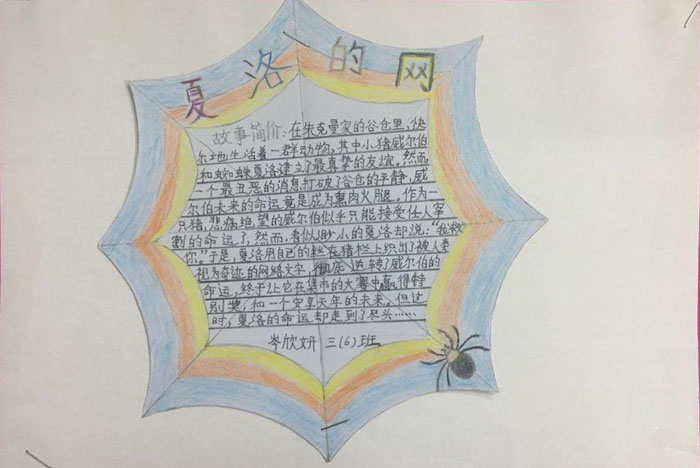 夏洛的网
故事简价:在朱克曼家的谷仓里,快
乐地生活着一群动物,其中小猪威尔伯
和蜘蛛夏洛建立了最真挚的友谊。然而,
一个最丑恶的消息打破了谷仓的平静,威
尔伯未来的命运竟是成为熏肉火腿。作为一
只猪,悲痛绝望的威尔伯似乎只能接受任人宰
割的命运了,然而,看似渺小的夏洛却说:“我救
你。”于是,夏洛用自己的丝在猪栏上织出了被人类
视为奇迹的网络文字,彻底逆转了威尔伯的
命运,终于让它在集市的大赛中赢得特
别奖,和一个安享天年的未来。但这
时,夏洛的命运却走到了尽头……
岑欣妍 三(6)班